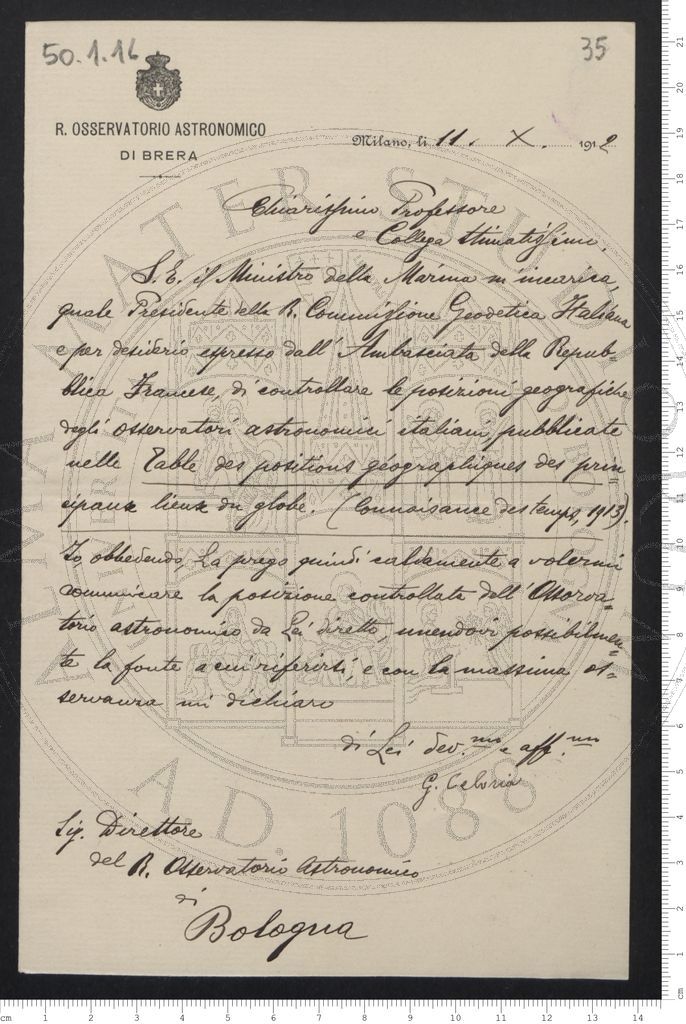 50.1.16
35
R. OSSERVATORIO ASTRONOMICO
DI BRERA
Milano, li 11. X. 1912
Chiarissimo Professore
e Collega stimatissimo,
S. E. il Ministro della Marina m'incarica,
quale Presidente della R. Commissione Geodetica Italiana
e per desiderio espresso dall'Ambasciata della Repub-
blica Francese, di controllare le posizioni geografiche
degli osservatori astronomici italiani, pubblicate
nelle Table des positions géographiques des prin
cipaux lieux du globe. (Connaisance des temps, 1913).
Io obbedendo, La prego quindi caldamente a volermi
comunicare la posizione controllata dell'Osserva-
torio astronomico da Lei diretto, unendovi possibilmen-
te la fonte a cui riferirsi, e con la massima os-
servanza mi dichiaro
di Lei dev.mo e aff.mo
G. Celoria
Sig. Direttore
del R. Osservatorio Astronomico
di
Bologna
ALMA MATER STUDIORUM
A.D. 1088